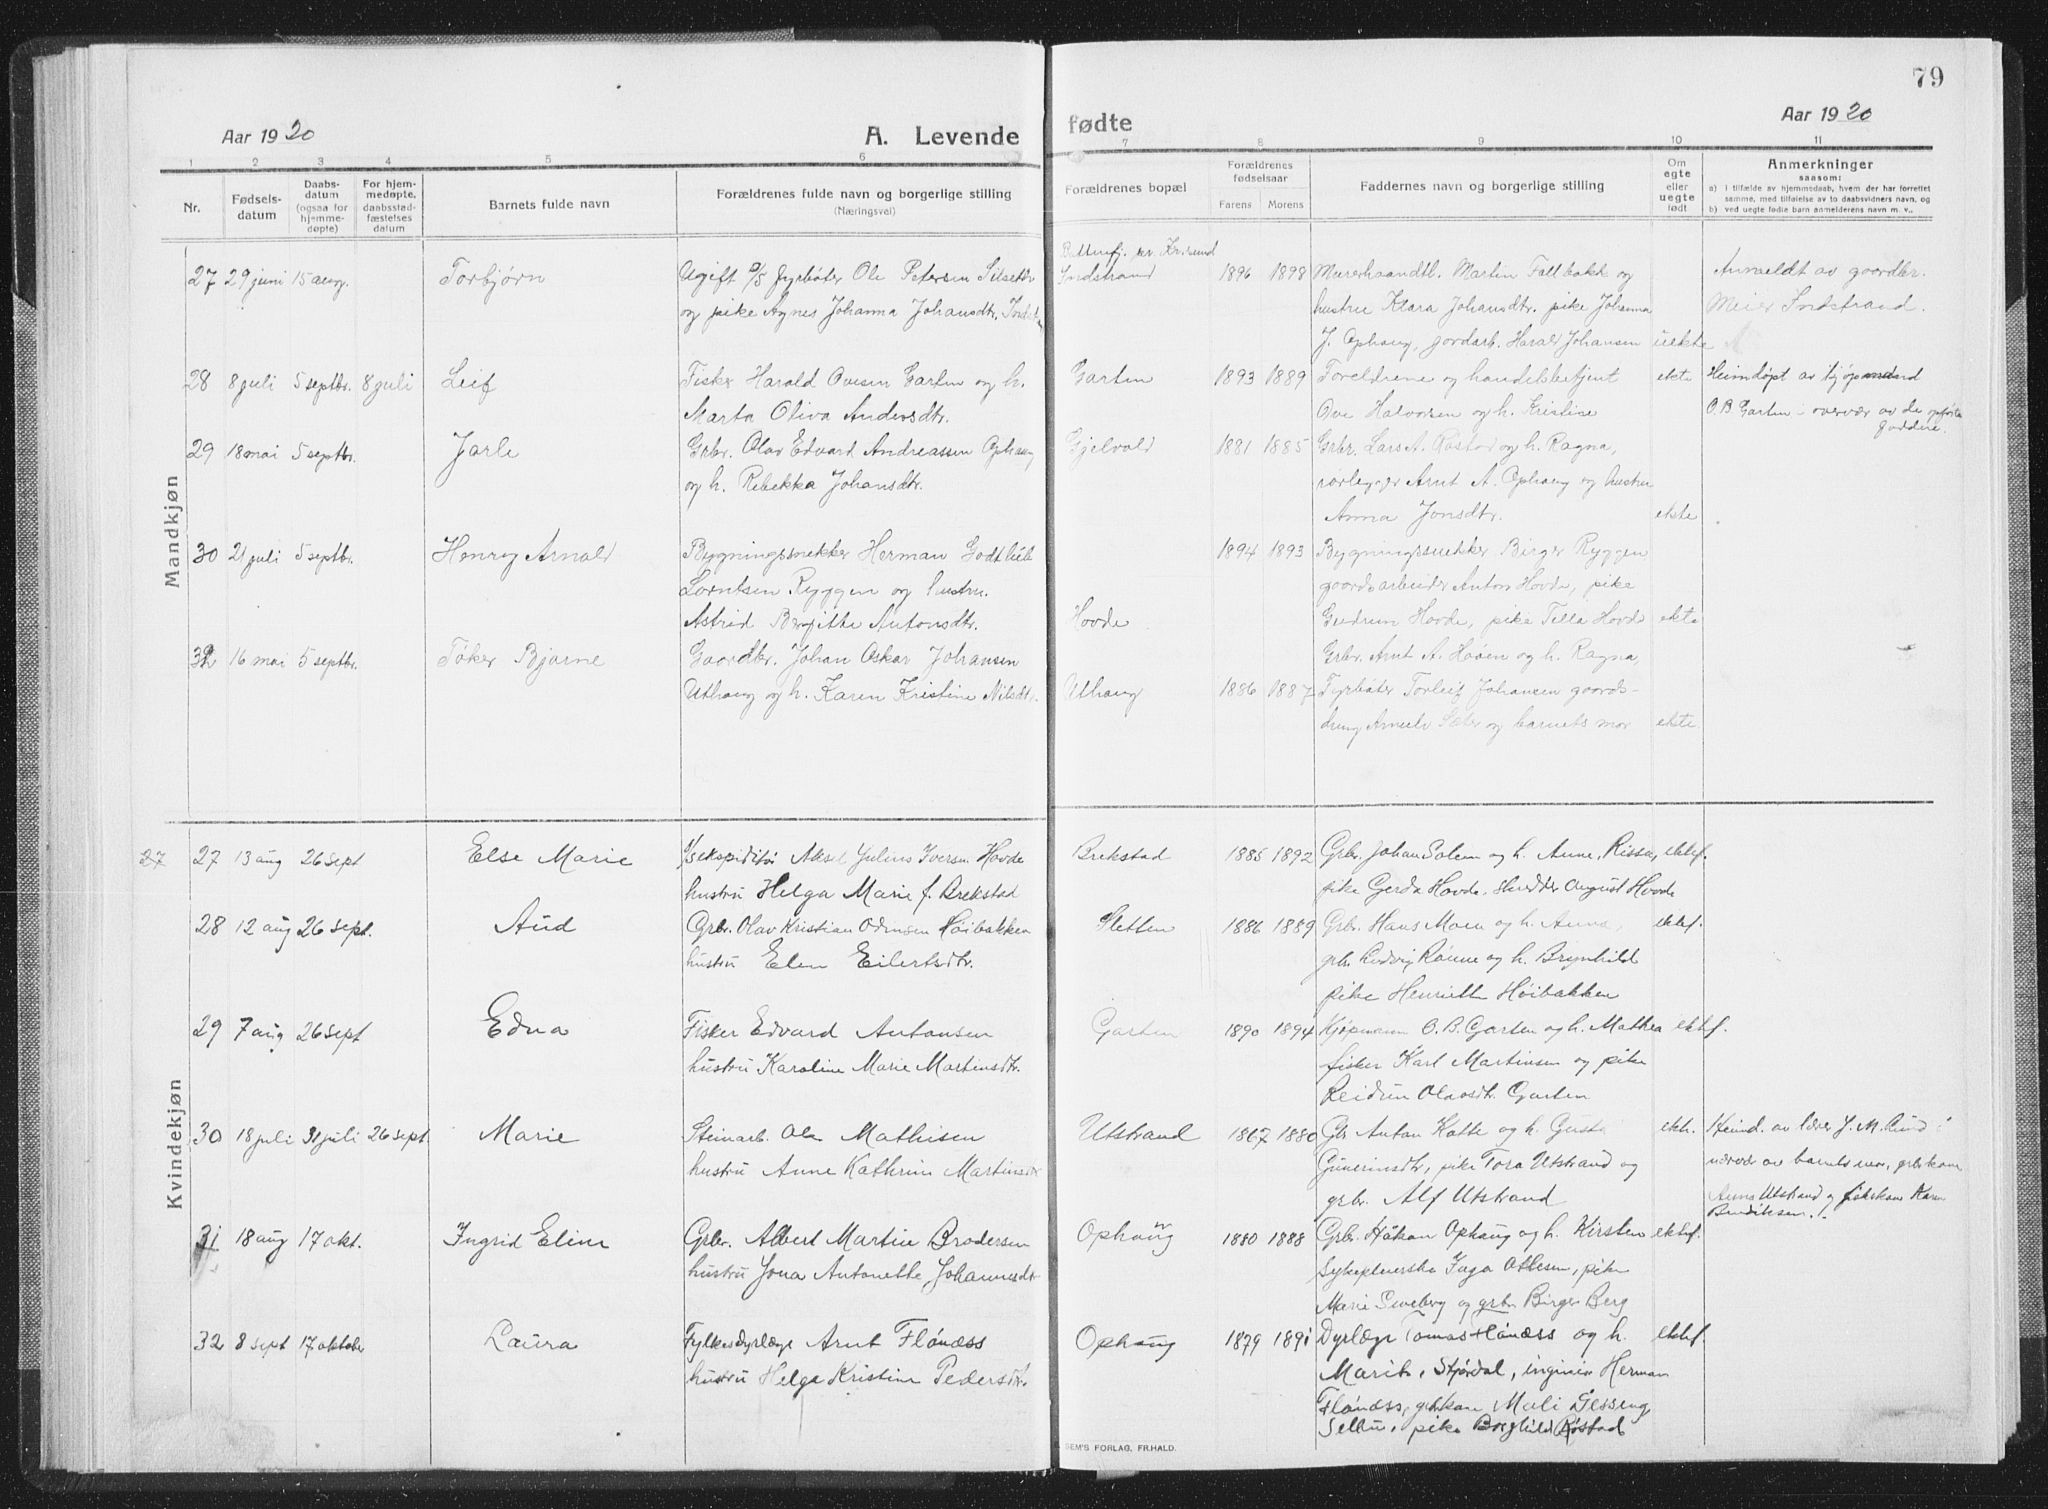 79
Aar 1920
A. Levende fødte
Aar 1920
1 2 3 4 5 6 7 8 9 10 11
Nr.
Fødsels-
datum
Daabs-
datum
(ogsaa for
hjemme-
døpte)
For hjem-
medøpte,
daabsstad-
fæstelses
datum
Barnets fulde navn
Forældrenes fulde navn og borgerlige stilling
(Næringsvei)
Forældrenes bopæl
Forældrenes
fødselsaar
Farens Morens
Faddernes navn og borgerlige stilling
Om
egte
eller
uegte
født
Anmerkninger
saasom:
a) i tilfælde av hjemmedaab, hvem der har forrettet
samme, med tilføielse av to daabsvidners navn, og
b) ved uegte fødte barn anmelderens navn m. v..
Mandkjøn
27 29 juni 15 aug. Torbjørn
Ugift Fyrbøter Ole Petersen
og pike Agnes Johanna Johansdtr.
Indstrand 1896 1898
Murerhaandtl. Martin Fallbakk og
hustru Klara Johansdtr. pike Johanna
J. Ophaug, gordarb. Harald Johansen uekte
Anmeldt av gaardbr.
Meier Indstrand.
28 8 juli 5 septbr. 8 juli Leif
Fisker Harald Ovesen Garten og h.
Marta Oliva Andersdtr.
Garten 1893 1889
Foreldrene og handelsbetjent
Ove Halvorsen og h. Kristine
ekte
Heimdøpt av kjøpmand
O. B. Garten i overvær av de opførte
faddere.
29 18 mai 5 septbr. Jarle
Grbr. Olav Edvard Andreassen Ophaug
og h. Rebekka Johansdtr.
Gjelvold 1881 1885
Grbr. Lars A. Røstad og h. Ragna,
rørlegger Arnt A. Ophaug og hustru
Anna Jonsdtr. ekte
30 21 juli 5 septbr. Henry Arnold
Bygningssnekker Herman Godthilf
Lorntsen Ryggen og hustru.
Astrid Bergitte Antonsdtr.
Hovde 1894 1893
Bygningssnekker Birger Ryggen
goordsarbeider Anton Hovde, pike
Gudrun Hovde, pike Tella Hovde ekte
32 16 mai 5 septbr. Tøker Bjarne
Gaardbr. Johan Oskar Johansen
Uthaug og h. Karen Kristine Nilsdtr.
Uthaug 1886 1887
Grbr. Arnt A. Høøen og h. Ragna,
Fyrbøter Torleif Johansen goords-
dreng Sæter og barnets mor ekte
Kvindekjøn
27 27 13 aug 26 sept Else Marie
Aksel Julius Iversen Hovde
hustru Helga Marie f. Brekstad
Brekstad 1885 1892
Grbr. Johan Solem og h. Anne, Rissa, ektef.
pike Gerda Hovde. skredder August Hovde
28 12 aug 26 sept. Aud
Grbr. Olav Kristian Odinsen Høibakken
hustru Elen Eilertsdtr.
Sletten 1886 1889
Grbr. Hans Moen og h. Anna, ektef.
grbr. Ludvig Rønne og h. Brynhild
pike Henriette Høibakken
29 7 aug 26 sept Edna
Fisker Edvard Antonsen
hustru Karoline Marie Martinsdtr.
Garten 1890 1894
Kjøpmann O. B. Garten og h. Mathea ektef.
fisker Karl Martinsen og pike
Reidun Olavsdtr. Garten
30 18 juli 31 juli 26 sept. Marie
Steinarb. Ole Mathisen
hustru Anne Kathrine Martinsdtr
Utstrand 1867 1880
Gbr Anton Kotte og h. Gusta ekte.
Gunerinsdtr, pike Tora Utstrand og
grbr. Alf Utstrand
Heimd. av lærer J. M. Rund i
nærvær av barnets mor, grbrkone
Anna Utstrand og fiskekone Karen
Bendiksen.
31 18 aug 17 okt. Ingrid Eline
Grbr. Albert Martin Brodersen
hustru Jona Antonette Johannesdtr
Ophaug 1880 1888
Grbr. Håkon Ophaug og h. Kirsten ektef.
Sykepleierske Inga Ottesen, pike
Marie Sweberg og grbr. Birger Berg
32 8 sept 17 oktober Laura
Fylkesdyrlæge Arnt Flönæss
hustru Helga Kristine Pedersdtr.
Ophaug 1879 1891
Dyrlæge Tomas Flönæss og h. ektef.
Marit, Stjørdal, inginiør Herman
Flönæss, grbrkone Mali Tessing,
Selbu, pike Borghild Røstad
SEM'S FORLAG, FR.HALD.